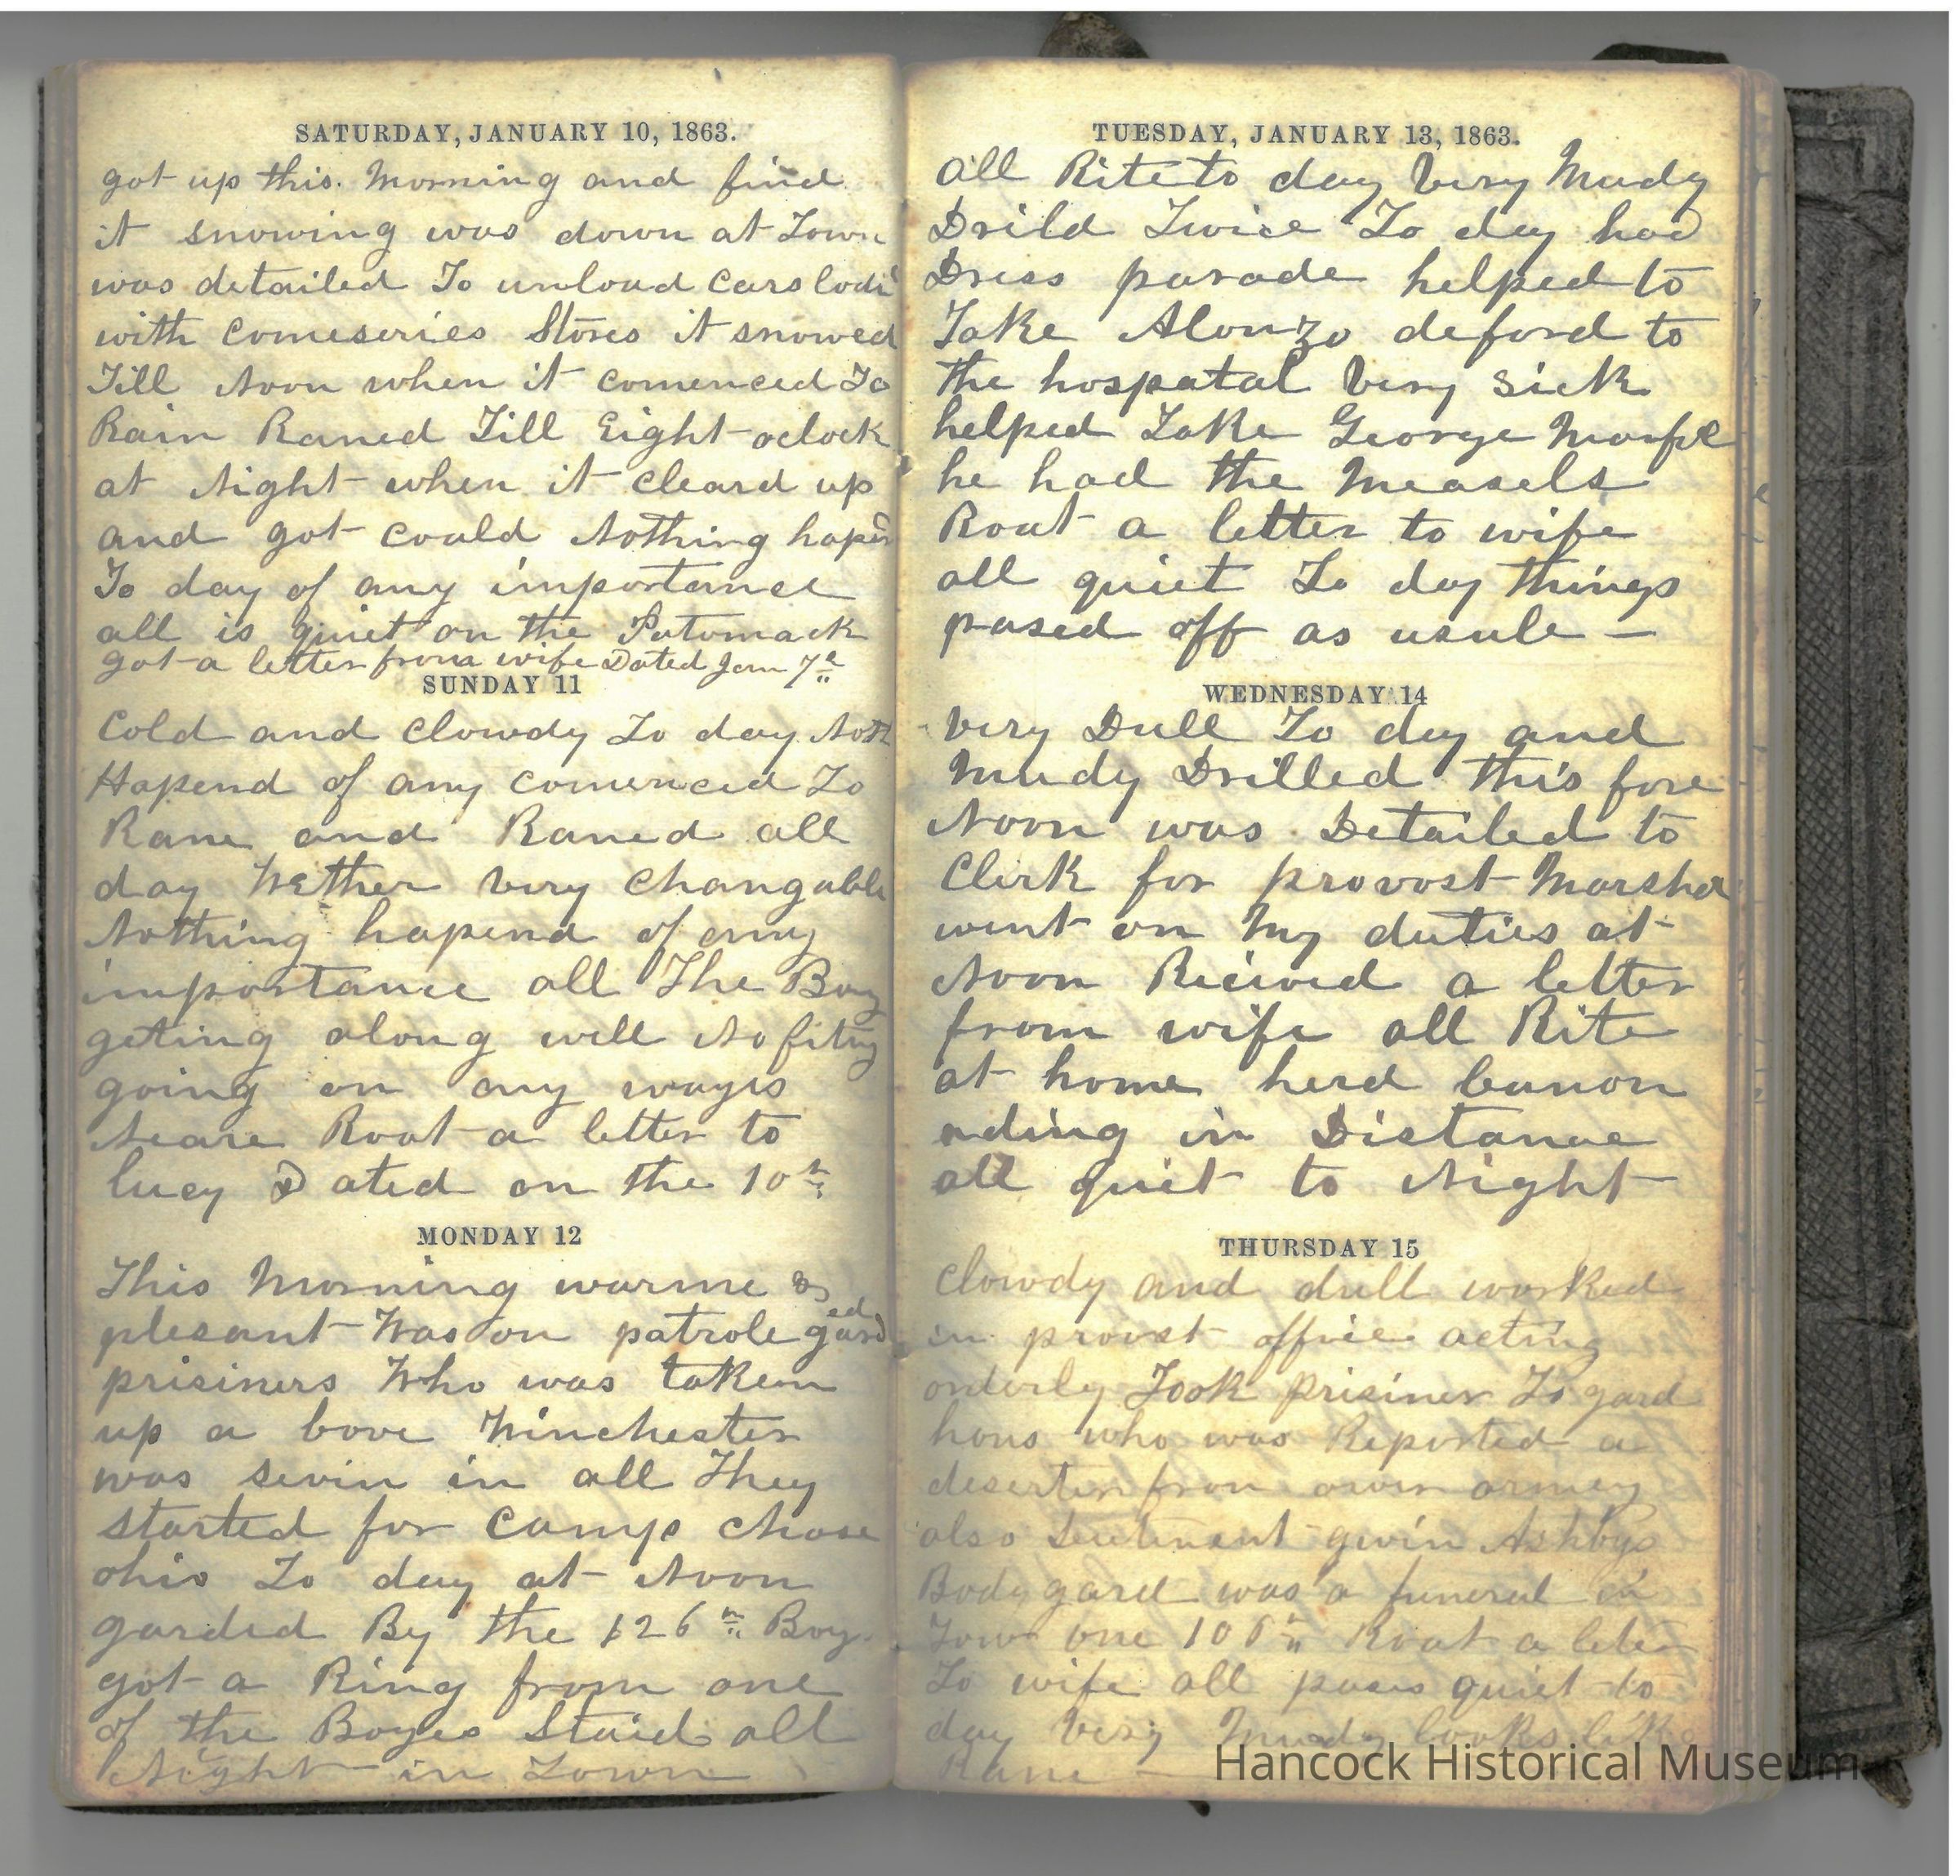 SATURDAY, JANUARY 10, 1863.
got up this. Morning and find
it snowing was down at Town
was detailed To unload Cars lodi
with Comeseries Stores it snowed
Till Noon when it comenced To
Rain Raned Till Eight oclock
at Night when it cleard up
and got could Nothing hapend
To day of any importance
all is quiet on the Potomack
got a letter from wife Dated Jan 7th
SUNDAY 11
Cold and Clowdy To day Noth
Hapend of any comenced To
Rane and Raned all
day Wether very Changable
Nothing hapend of any
importance all The Boys
geting along well No fiting
going on any ways
Neare Roat a letter to
lucy Dated on the 10th
MONDAY 12
This Morning warme &
plesant Was on patrole garded
prisiners Who was taken
up a bove Winchester
was sevin in all They
started for Camp Chase
ohio To day at Noon
garded By the 126th Boy
got a Ring from one
of the Boyes Staid all
Night in Town
TUESDAY, JANUARY 13, 1863.
all Rite to day Very Mudy
Drild Twice To day had
Dress parade helped to
Take Alonzo deford to
the hospatal Very Sick
helped Take George
he had the Measels
Roat a letter to wife
all quiet To day things
pased off as usule —
WEDNESDAY 14
very Dull To day and
Mudy Drilled this fore
Noon was Detailed to
Clirk for provost Marshal
went on My duties at
Noon Recieved a letter
from wife all Rite
at home herd cannon
nding in Distance
all quiet to Night
THURSDAY 15
Clowdy and dull worked
in provst office acting
orderly Took prisiner To gard
hous who was Reported a
deserter from owr armey
also Leutenant gwin Ashbys
Body gard was a funeral in
Town one 106th Roat a leter
To wife all pases quiet to
day very Mudy looks like
Rane —
Hancock Historical Museum